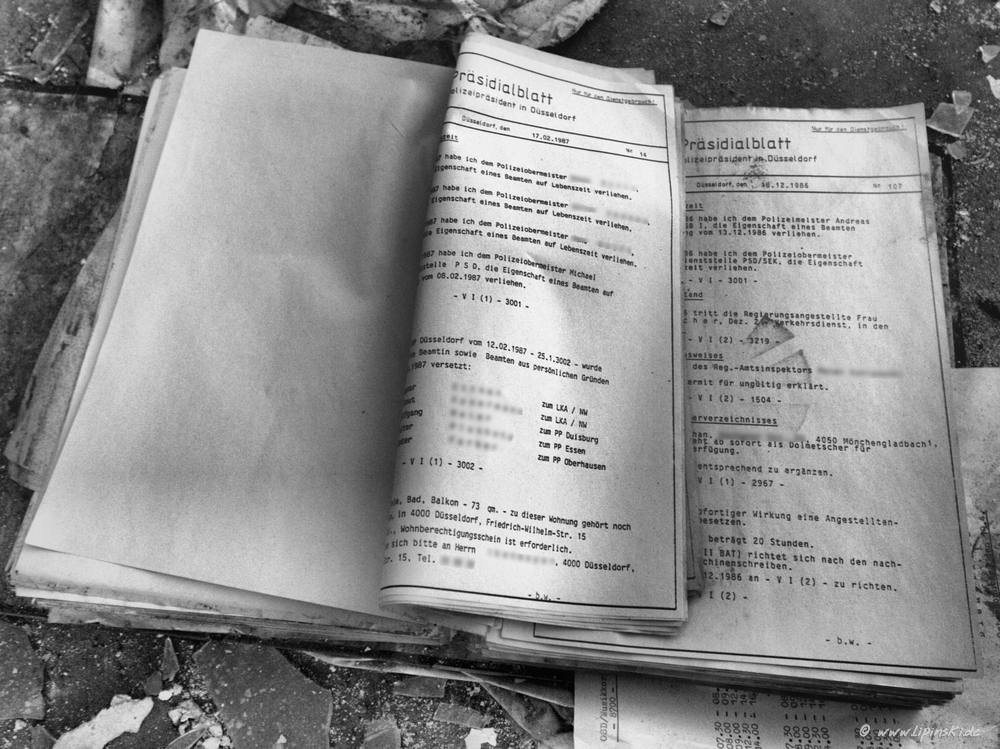 Präsidialblatt
Nur für den Dienstgebrauch!
olizeipräsident in Düsseldorf
Düsseldorf, den 17.02.1987 Nr 14
zeit
87 habe ich dem Polizeiobermeister
Eigenschaft eines Beamten auf Lebenszeit verliehen.
87 habe ich dem Polizeiobermeister
Eigenschaft eines Beamten auf Lebenszeit verliehen.
87 habe ich dem Polizeiobermeister
ie Eigenschaft eines Beamten auf Lebenszeit verliehen.
987 habe ich dem Polizeiobermeister Michael
stelle P S D, die Eigenschaft eines Beamten auf
vom 08.02.1987 verliehen.
- V I (1) - 3001 -
Düsseldorf vom 12.02.1987 - 25.1.3002 - wurde
e Beamtin sowie Beamten aus persönlichen Gründen
.1987 versetzt:
zum LKA / NW
zum LKA / NW
zum PP Duisburg
zum PP Essen
zum PP Oberhausen
- V I (1) - 3002 -
Bad, Balkon - 73 qm. - zu dieser Wohnung gehört noch
in 4000 Düsseldorf, Friedrich-Wilhelm-Str. 15
Wohnberechtigungsschein ist erforderlich.
sich bitte an Herrn , 4000 Düsseldorf,
r. 15, Tel.
- b.w. -
Präsidialblatt
Nur für den Dienstgebrauch!
lizeipräsident in Düsseldorf
Düsseldorf, den 16.12.1986 Nr 107
zeit
86 habe ich dem Polizeimeister Andreas
I, die Eigenschaft eines Beamten
ng vom 13.12.1986 verliehen.
86 habe ich dem Polizeiobermeister
enststelle PSD/SEK, die Eigenschaft
zeit verliehen.
- V I (1) - 3001 -
tand
6 tritt die Regierungsangestellte Frau
c h e r, Dez. verkehrsdienst, in den
- V I (2) - 3219 -
sweises
des Reg.-Amtsinspektors
ermit für ungültig erklärt.
- V I (2) - 1504 -
erverzeichnisses
han. 4050 Mönchengladbach1,
eht ab sofort als Dolmetscher für
erfügung.
entsprechend zu ergänzen.
V I (1) - 2967 -
ofortiger Wirkung eine Angestellten-
besetzen.
beträgt 20 Stunden.
II BAT) richtet sich nach den nach-
chinenschreiben.
12.1986 an - V I (2) - zu richten.
I (2) -
- b.w. -
© www.lipinski.de